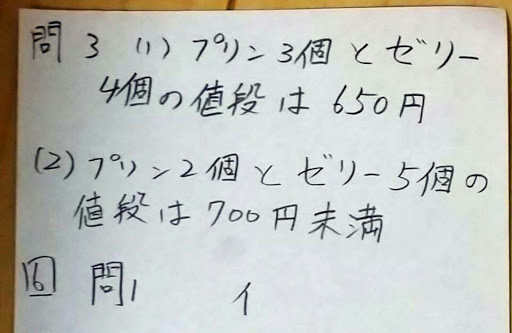 問3 (1) プリン3個とゼリー
4個の値段は650円
(2) プリン2個とゼリー5個の
値段は700円未満
16 問1 イ